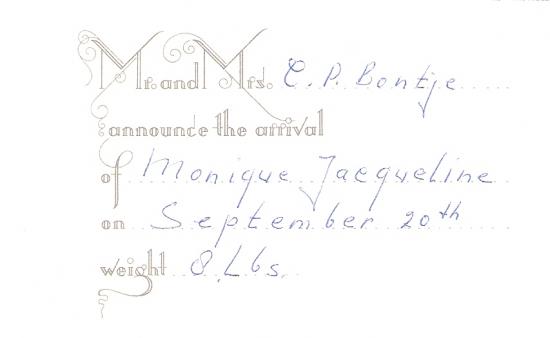 Mr. and Mrs. C. P. Bontje
announce the arrival
of Monique Jacqueline
on September 20th
weight 8 Lbs.